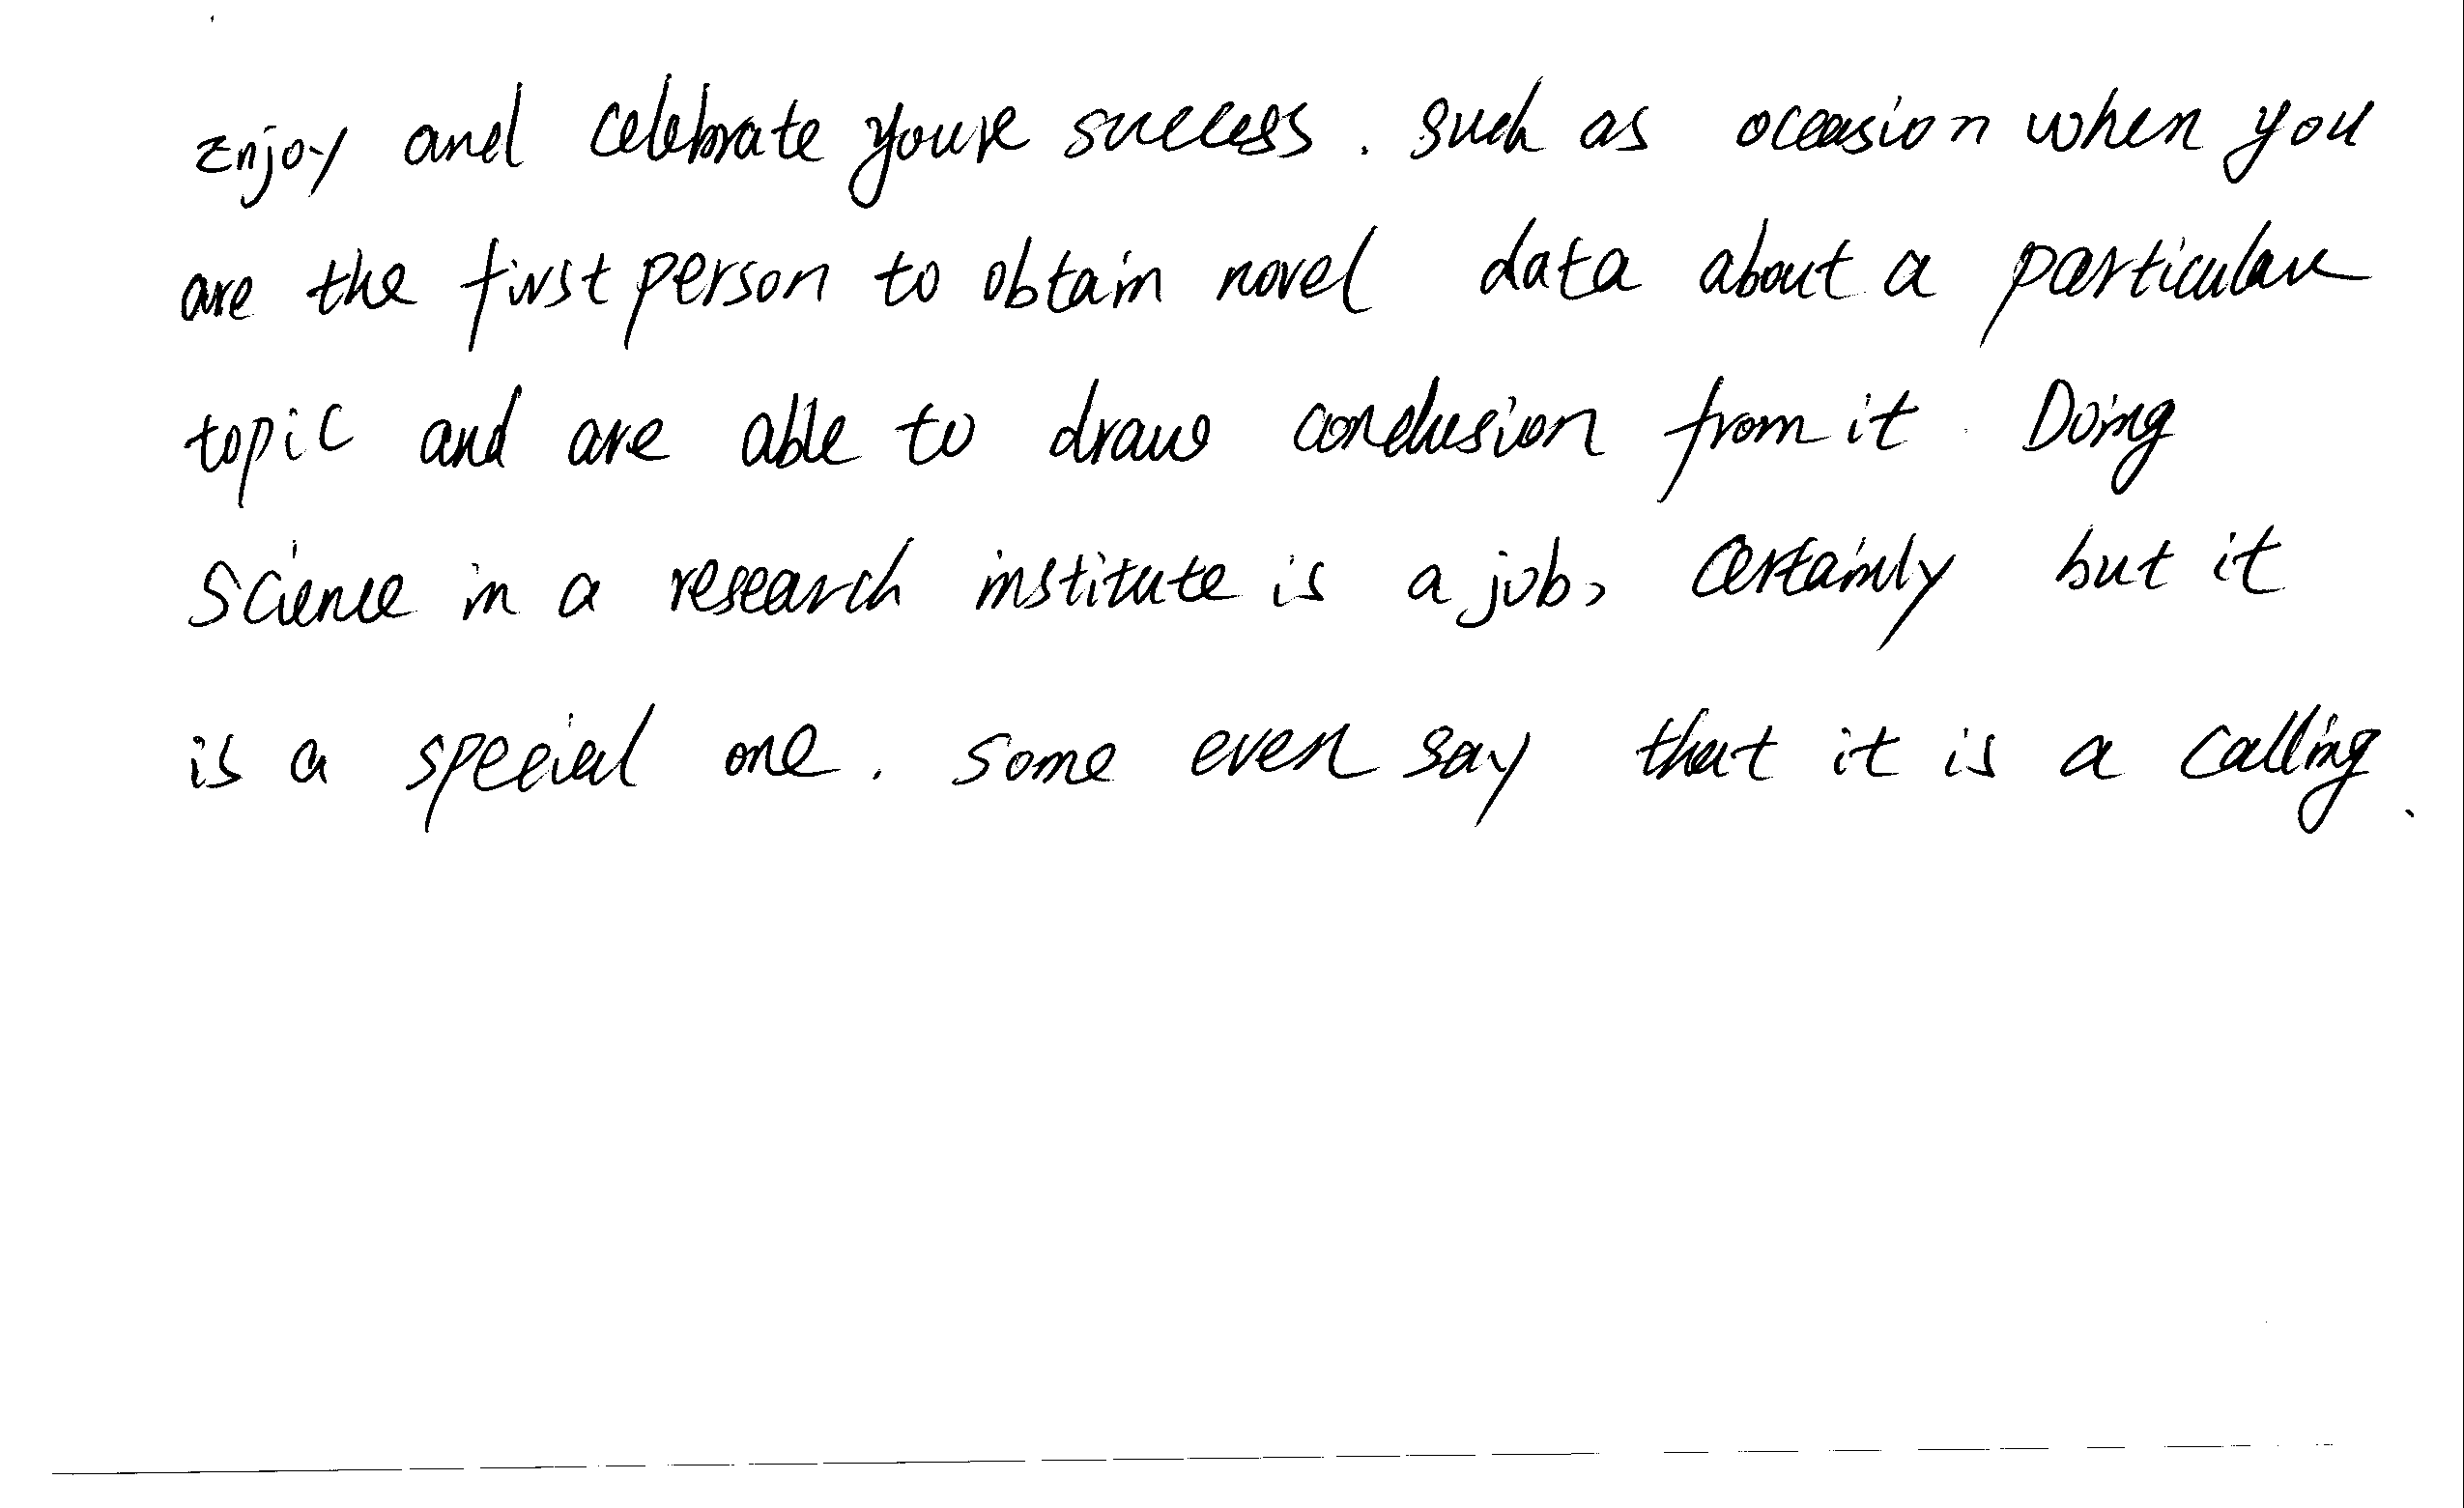 Enjoy and celebrate your success. such as occasion when you
are the first person to obtain novel data about a particular
topic and are able to draw conclusion from it. Doing
Science in a research institute is a job, certainly but it
is a special one. Some even say that it is a calling.